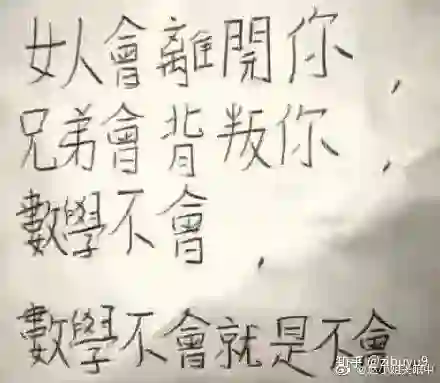 女人會離開你，
兄弟會背叛你，
數學不會，
數學不會就是不會
知乎 @zibuyu9